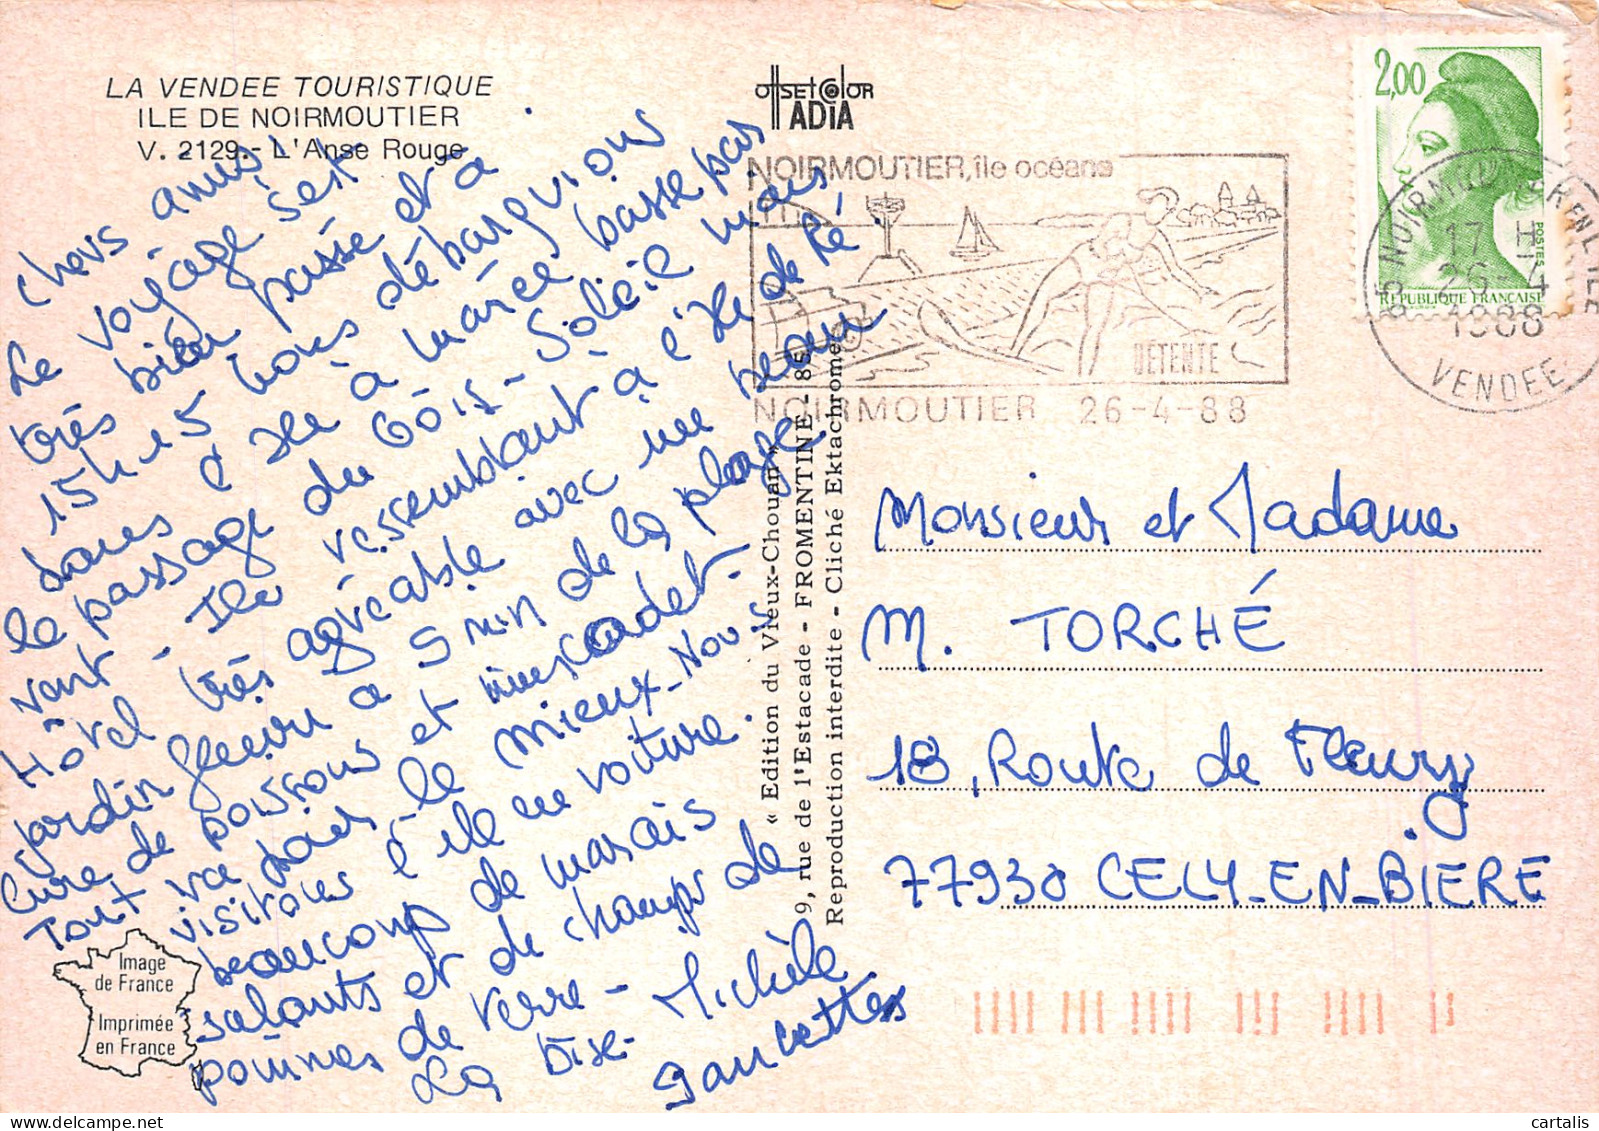 LA VENDEE TOURISTIQUE
ILE DE NOIRMOUTIER
V. 2129.- L'Anse Rouge
Chers amis,
Le voyage s'est
très bien passé et à
15h15 nous débarquions
dans l'Ile à marée basse par
le passage du Gois - Soleil mais
vent - Ile ressemblant à l'Ile de Ré.
Hôtel très agréable avec un beau
jardin fleuri à 5 min de la plage.
Cure de poissons et muscadet -
Tout va pour le mieux - Nous
visitons l'île en voiture.
beaucoup de marais
salants et de champs de
pommes de terre -
La bise - Michèle
Image
de France
Imprimée
en France
offset color
ADIA
« Edition du Vieux-Chouan »
9, rue de l'Estacade - FROMENTINE - 85
Reproduction interdite - Cliché Ektachrome
NOIRMOUTIER, île océane
DÉTENTE
NOIRMOUTIER 26-4-88
2,00
POSTES
REPUBLIQUE FRANÇAISE
85 NOIRMOUTIER EN L'ILE
17 H
26-4
1988
VENDEE
Monsieur et Madame
M. TORCHÉ
18, Route de Fleury
77930 CELY-EN-BIERE
cartalis